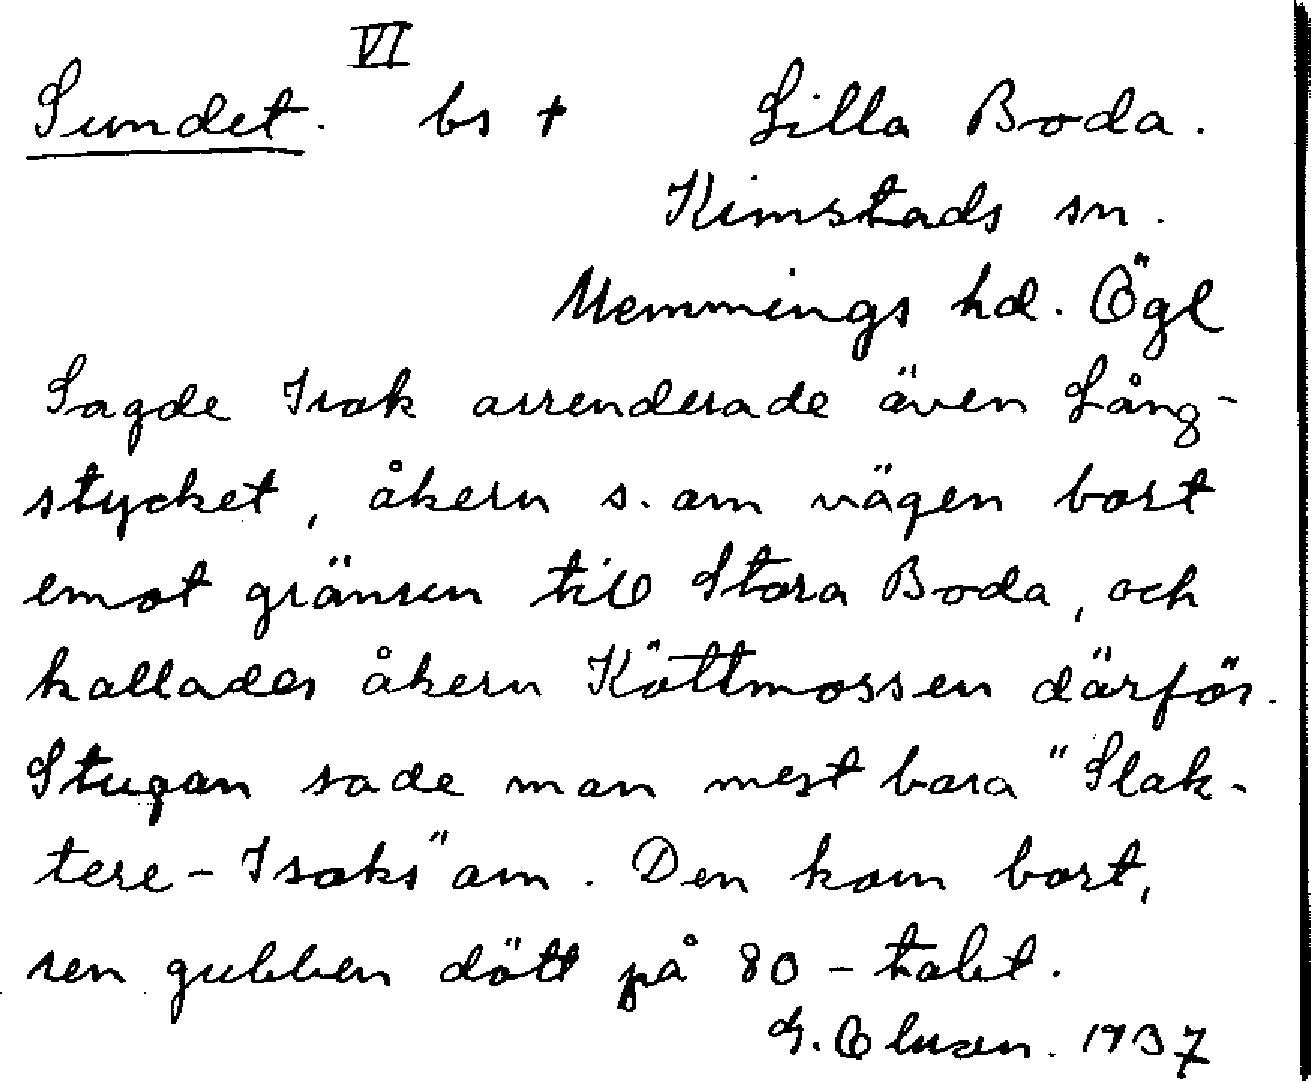 VI
Sundet. bs + Lilla Boda.
Kimstads sn.
Memmings hd. Ögl
Sagde Isak arrenderade även Lång-
stycket, åkern s. om vägen bort
emot gränsen till Stora Boda, och
kallades åkern Köttmossen därför.
Stugan sade man mest bara "Slak-
tere-Isaks" om. Den kom bort,
sen gubben dött på 80-talet.
G. Olsson. 1937